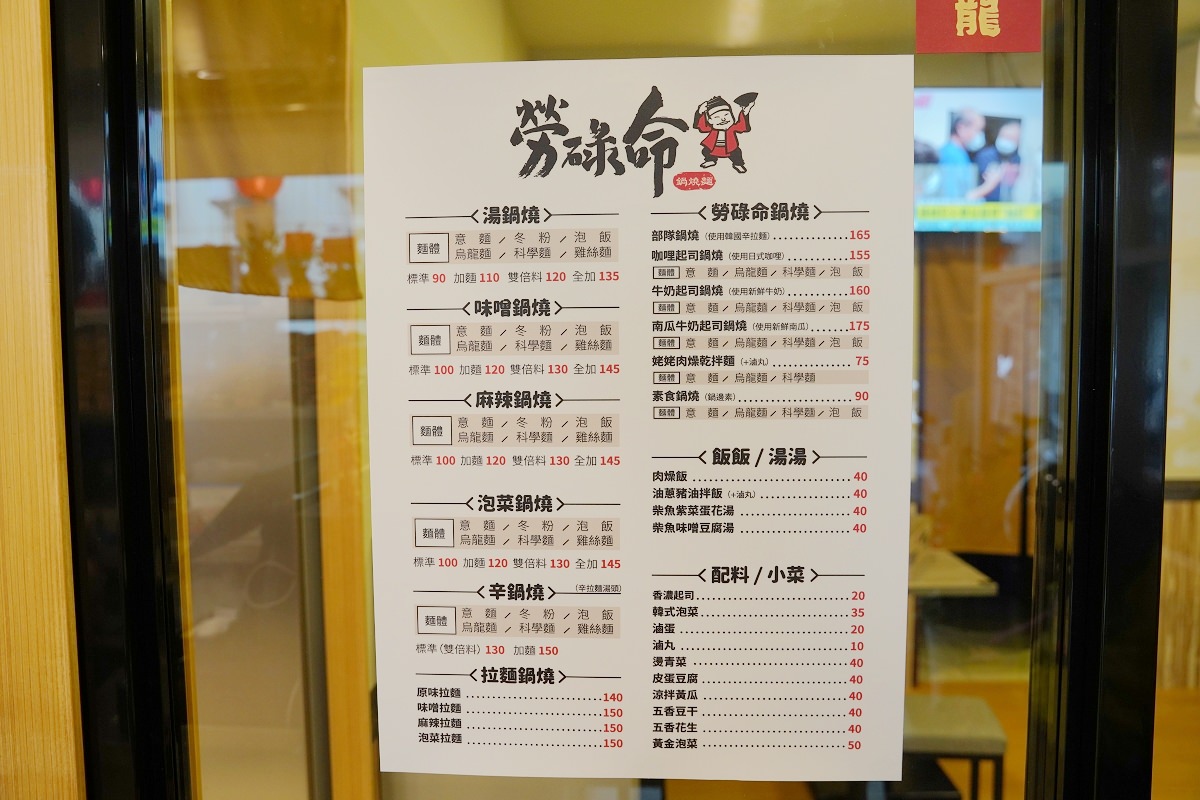 龍
勞碌命
鍋燒麵
湯鍋燒
麵體 意麵/冬粉/泡飯
烏龍麵/科學麵/雞絲麵
標準 90 加麵 110 雙倍料 120 全加 135
味噌鍋燒
麵體 意麵/冬粉/泡飯
烏龍麵/科學麵/雞絲麵
標準 100 加麵 120 雙倍料 130 全加 145
麻辣鍋燒
麵體 意麵/冬粉/泡飯
烏龍麵/科學麵/雞絲麵
標準 100 加麵 120 雙倍料 130 全加 145
泡菜鍋燒
麵體 意麵/冬粉/泡飯
烏龍麵/科學麵/雞絲麵
標準 100 加麵 120 雙倍料 130 全加 145
辛鍋燒 (辛拉麵湯頭)
麵體 意麵/冬粉/泡飯
烏龍麵/科學麵/雞絲麵
標準(雙倍料) 130 加麵 150
拉麵鍋燒
原味拉麵 140
味噌拉麵 150
麻辣拉麵 150
泡菜拉麵 150
勞碌命鍋燒
部隊鍋燒 (使用韓國辛拉麵) 165
咖哩起司鍋燒 (使用日式咖哩) 155
麵體 意麵/烏龍麵/科學麵/泡飯
牛奶起司鍋燒 (使用新鮮牛奶) 160
麵體 意麵/烏龍麵/科學麵/泡飯
南瓜牛奶起司鍋燒 (使用新鮮南瓜) 175
麵體 意麵/烏龍麵/科學麵/泡飯
姥姥肉燥乾拌麵 (+滷丸) 75
麵體 意麵/烏龍麵/科學麵
素食鍋燒 (鍋邊素) 90
麵體 意麵/烏龍麵/科學麵/泡飯
飯飯/湯湯
肉燥飯 40
油蔥豬油拌飯 (+滷丸) 40
柴魚紫菜蛋花湯 40
柴魚味噌豆腐湯 40
配料/小菜
香濃起司 20
韓式泡菜 35
滷蛋 20
滷丸 10
燙青菜 40
皮蛋豆腐 40
涼拌黃瓜 40
五香豆干 40
五香花生 40
黃金泡菜 50